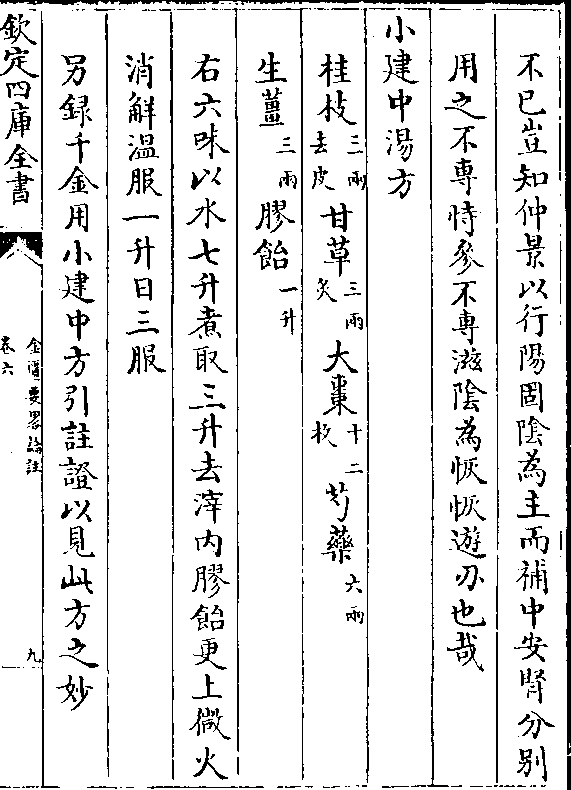 不已豈知仲景以行陽固陰為主而補中安腎分別
用之不專恃參不專滋陰為恢恢遊刃也哉
小建中湯方
桂枝三兩去皮 甘草三兩炙 大棗十二枚 芍藥六兩
生薑三兩 膠飴一升
右六味以水七升煮取三升去滓内膠飴更上微火
消解溫服一升日三服
另録千金用小建中方引註證以見此方之妙
欽定四庫全書
金匱要畧論註
卷六
九